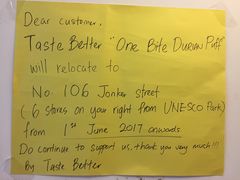 Dear customer,
Taste Better "One Bite Durian Puff"
will relocate to
No 106 Jonker street
(6 stores on your right from UNESCO Park)
from 1st June 2017 onwards
Do continue to support us, thank you very much!!!
By Taste Better